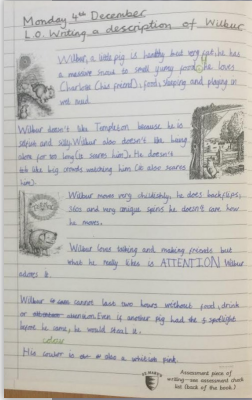 Monday 4th December
L.O. Writing a description of Wilbur
Wilbur, a little pig is humble but very fat, he has
a massive to small yummy food, he loves
Charlotte (his friend), food, sleeping and playing in
wet mud.
Wilbur doesn't like Templeton because he is
selfish and silly. Wilbur also doesn't like being
alone for too long (it scares him). He doesn't
like big crowds watching him (it also scares
him).
Wilbur moves very childishly, he does backflips,
and very unique spins he doesn't care how
he moves.
Wilbur loves talking and making friends but
what he really likes is ATTENTION. Wilbur
adores it.
Wilbur cannot last two hours without food, drink
or attention. Even if another pig had the spotlight
before he came, he would steal it.
colour
His is a whiteish pink.
Assessment piece of
writing—see assessment check
list (back of the book.)